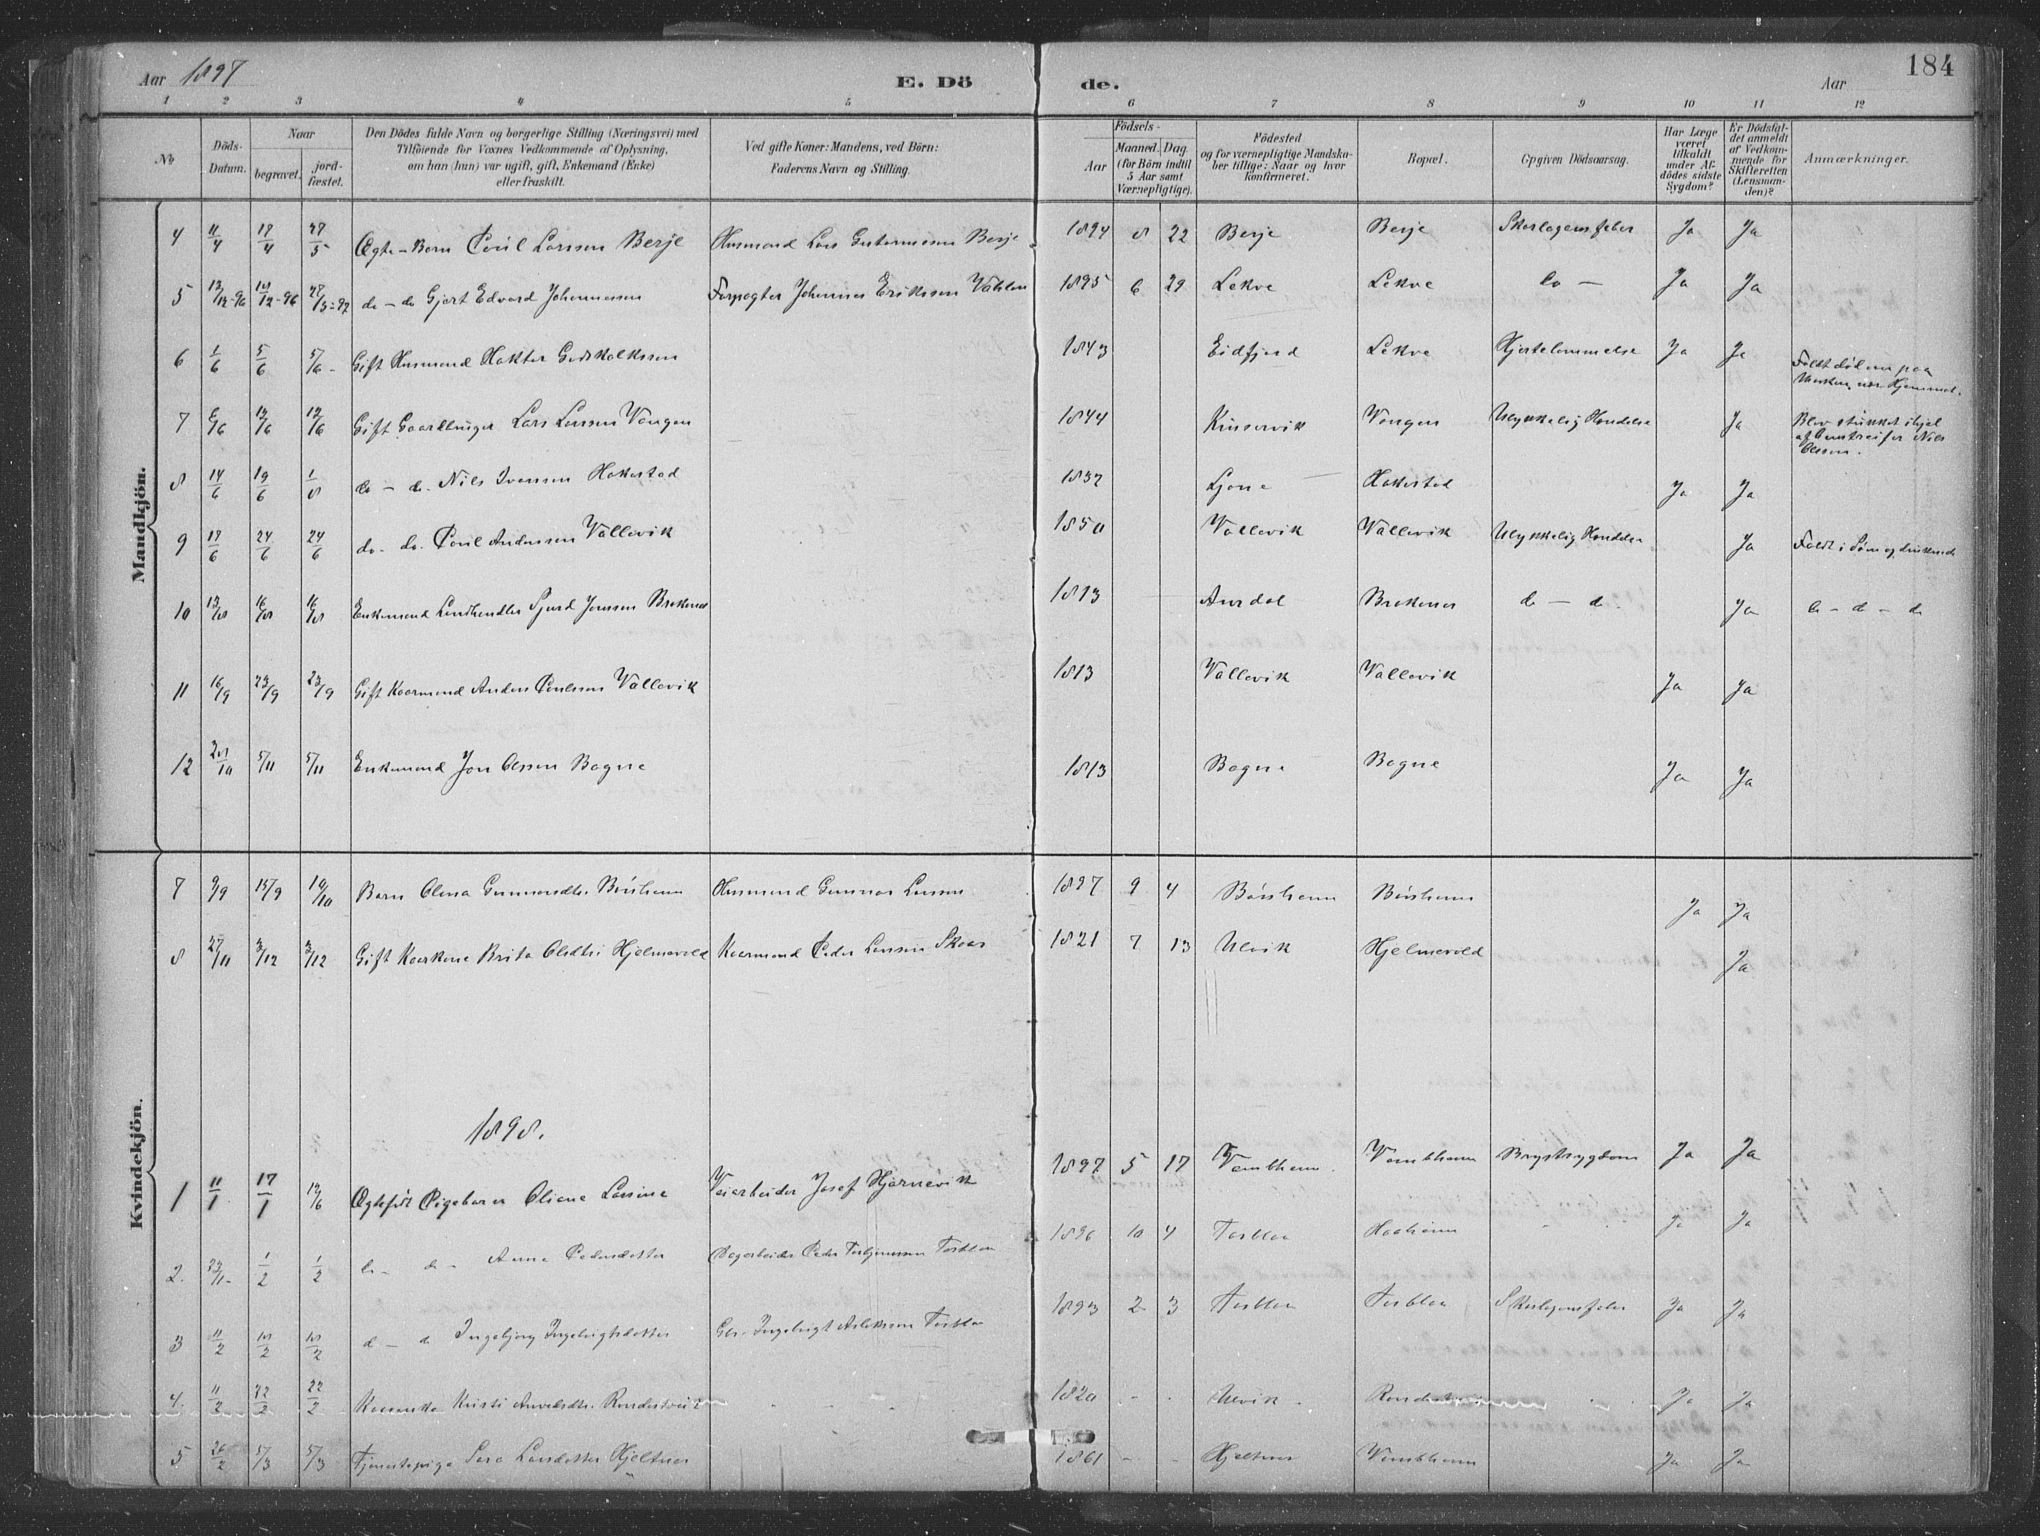 Aar 1897 E. Dö de. Aar 184
1 2 3 4 5 6 7 8 9 10 11 12
No
Döds-Datum.
Naar
begravet.
jordfæstet.
Den Dödes fulde Navn og borgerlige Stilling (Næringsvei) med
Tilföiende for Voxnes Vedkommende af Oplysning,
om han (hun) var ugift, gift, Enkemand (Enke)
eller fraskilt.
Ved gifte Koner: Mandens, ved Börn:
Faderens Navn og Stilling.
Födsels-
Aar
Maaned. Dag.
(for Börn indtil
5 Aar samt
Værnepligtige).
Födested
og for værnepligtige Mandskaber
tillige: Naar og hvor
konfirmeret.
Bopæl.
Opgiven Dödsaarsag.
Har Læge
været
tilkaldt
under Afdödes
sidste
Sygdom?
Er Dödsfaldet
anmeldt
af Vedkommende
for
Skifteretten
(Lensmanden)?
Anmærkninger.
Mandkjön.
4 11/4 17/4 27/5 Ægte-Barn Poul Larssen Berje Husmand Lars Guttormssen Berje 1894 8 22 Berje Berje Skarlagensfeber Ja Ja
5 12/12-96 18/12-96 28/3-97 do - do Gjert Edvard Johannessen Forpagter Johannes Erikssen 1895 6 29 Lekve Lekve do - Ja Ja
6 1/6 5/6 5/6 - Gift Husmand Haktor Godskalkssen 1843 Eidfjord Lekve Hjertelammelse Ja Ja Faldt død om paa
Marken nær Hjemmet.
7 6/6 12/6 12/6 Gift Gaardbruger Lars Larssen Vangen 1844 Kinservik Vangen Ulykkelig Hændelse Ja Blev stukket ihjel
af Nils
Olssen.
8 14/6 19/6 1/8 do - do. Nils Iverssen Hakestad 1837 Ljone Hakestad Ja Ja
9 17/6 24/6 24/6 do - do. Poul Anderssen Vallevik 1850 Vallevik Vallevik Ulykkelig Hændelse Ja Faldt i Søen og druknede
10 13/8 16/8 16/8 Enkemand Landhandler Sjurd Jonssen Brakenes 1813 Aurdal Brakenes do - do. Ja do - do - do
11 16/9 23/9 23/9 Gift Kaarmand Anders Poulssen Vallevik 1813 Vallevik Vallevik Ja Ja
12 28/10 5/11 5/11 Enkemand Jon Olssen Bagne 1813 Bagne Bagne Ja Ja
Kvindekjön.
7 9/9 15/9 10/10 Barn Olena Gunnarsdtr. Børsheim Husmand Gunnar Larssen 1897 9 4 Børsheim Børsheim Ja Ja
8 27/11 3/12 3/12 Gift Kaarkone Brita Olsdtr. Hjelmevold Kaarmand Peder Larssen Skaar 1821 7 13 Ulvik Hjelmevold Ja
1898.
1 11/1 17/1 12/6 Ægtefødt Pigebarn Oliane Larsine Veiarbeider Josef Hjørnevik 1897 5 17 Vambheim Vambheim Brystsygdom Ja Ja
2. 23/1- 1/2 1/2 do - do - Anna Pedersdatter Dagarbeider Peder Torbjørnssen Torblaa 1896 10 4 Torblaa Haaheim Ja Ja
3 11/2 18/2 18/2 do - do Ingebjørg Ingebrigtsdatter Gbr. Ingebrigt Aslakssen Torblaa 1893 2 3 Torblaa Torblaa Skarlagensfeber Ja Ja
4. 11/2 22/2 22/2 Kristi Rondestveit 1820 - - Ulvik Ja Ja
5 26/2 5/3 5/3 Tjenestepige Sara Larsdatter Hjeltnes 1861 - - Hjeltnes Vambheim Ja Ja